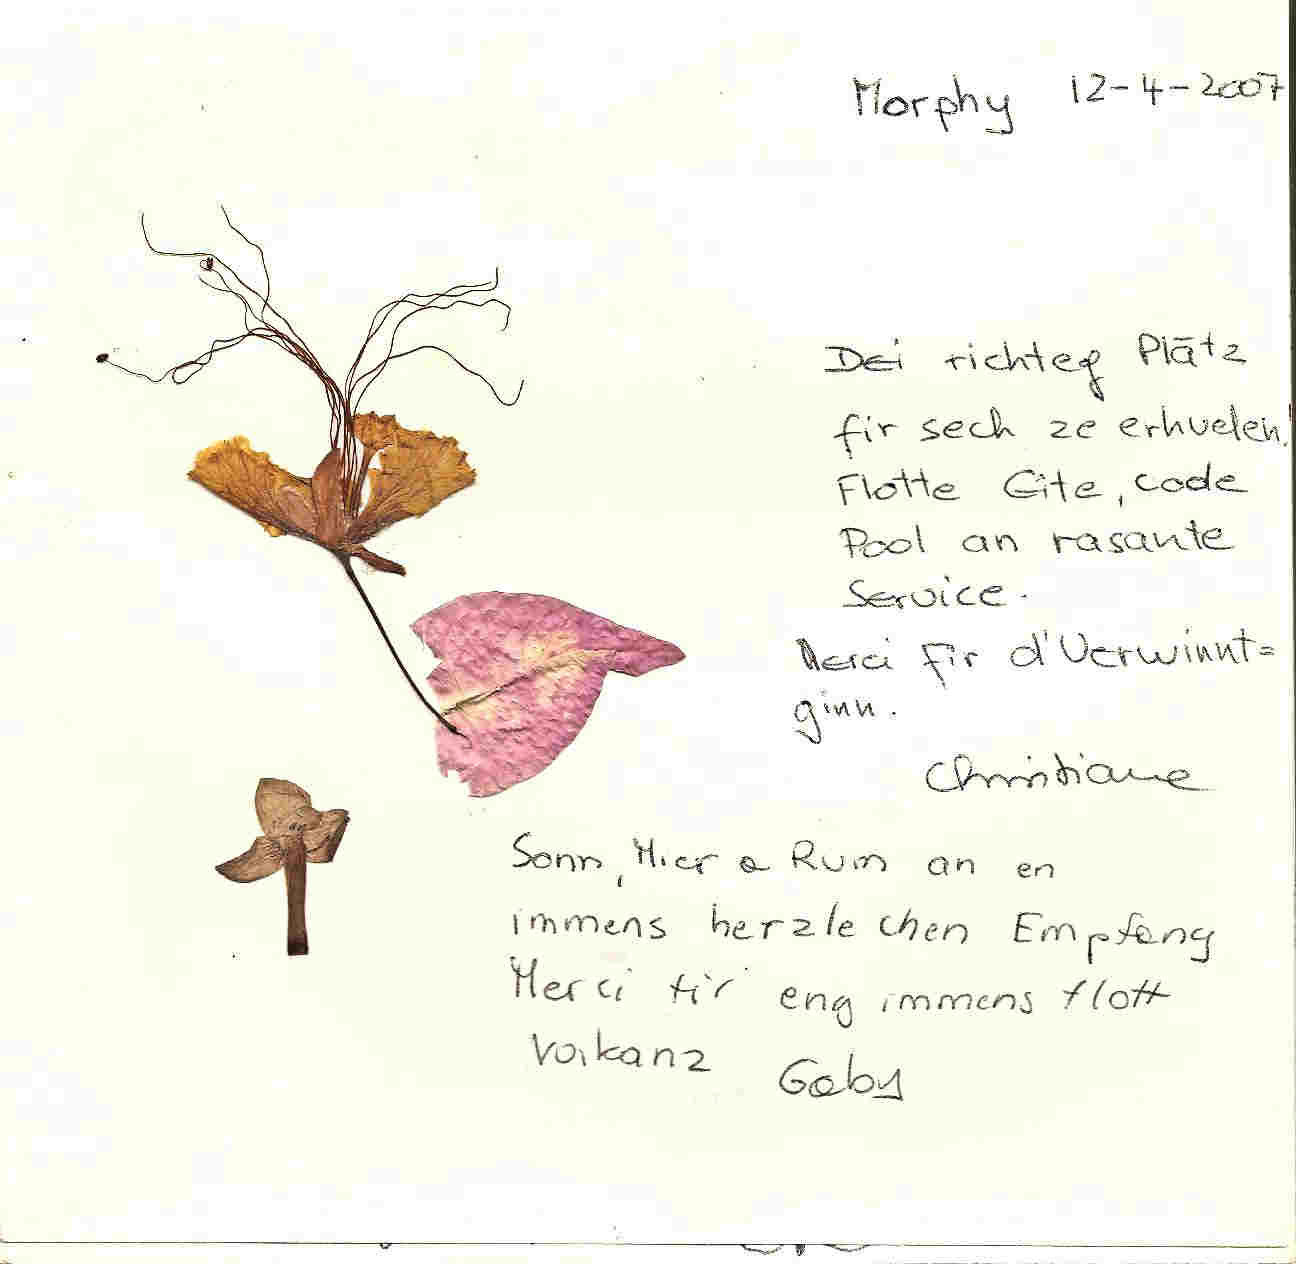 Morphy 12-4-2007
Dei richteg Plätz
fir sech ze erhuelen!
Flotte Gîte, coole
Pool an rasante
Service.
Merci fir d'Verwinnt=
ginn.
Christiane
Sonn, Mier a Rum an en
immens herzlechen Empfang
Merci fir eng immens flott
Vakanz Gaby